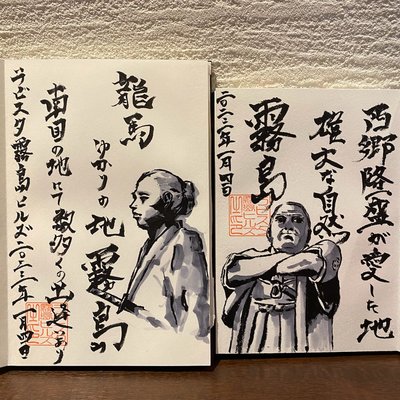 西郷隆盛が愛した地
雄大な自然
霧島
二〇二二年一月四日
龍馬
ゆかりの地 霧島の
南国の地にて数多くの
ラビスタ霧島ヒルズ二〇二二年一月四日